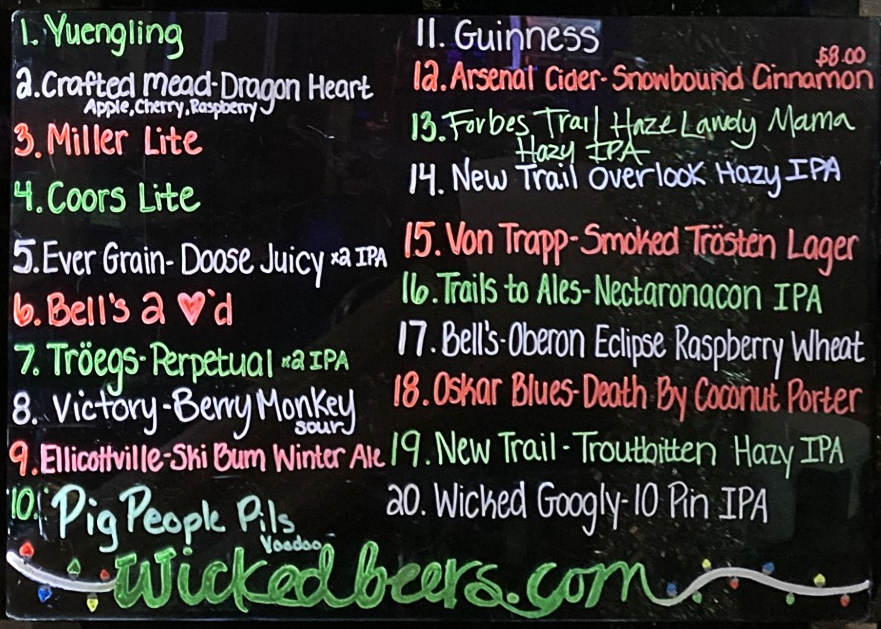 1. Yuengling
2. Crafted Mead-Dragon Heart
Apple, Cherry, Raspberry
3. Miller Lite
4. Coors Lite
5. Ever Grain-Doose Juicy x2 IPA
6. Bell's 2 ♥'d
7. Tröegs-Perpetual x2 IPA
8. Victory-Berry Monkey
sour
9. Ellicottville-Ski Bum Winter Ale
10. Pig People Pils
Voodoo
11. Guinness
$8.00
12. Arsenal Cider-Snowbound Cinnamon
13. Forbes Trail Haze Lawdy Mama
Hazy IPA
14. New Trail Overlook Hazy IPA
15. Von Trapp-Smoked Trösten Lager
16. Trails to Ales-Nectaronacon IPA
17. Bell's-Oberon Eclipse Raspberry Wheat
18. Oskar Blues-Death By Coconut Porter
19. New Trail-Troutbitten Hazy IPA
20. Wicked Googly-10 Pin IPA
Wickedbeers.com